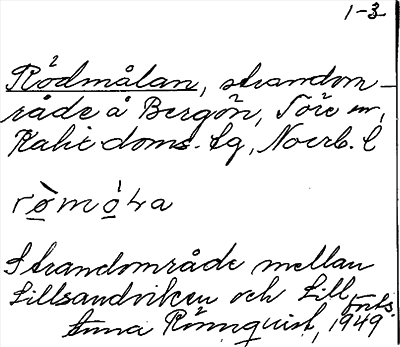 1-3
Rödmålan, strandom-
råde å Bergön, Töre sn,
Kalix doms. tg, Norrb. l
Strandområde mellan
Lillsandviken och Lill
Forts.
Anna Rönnquist, 1949